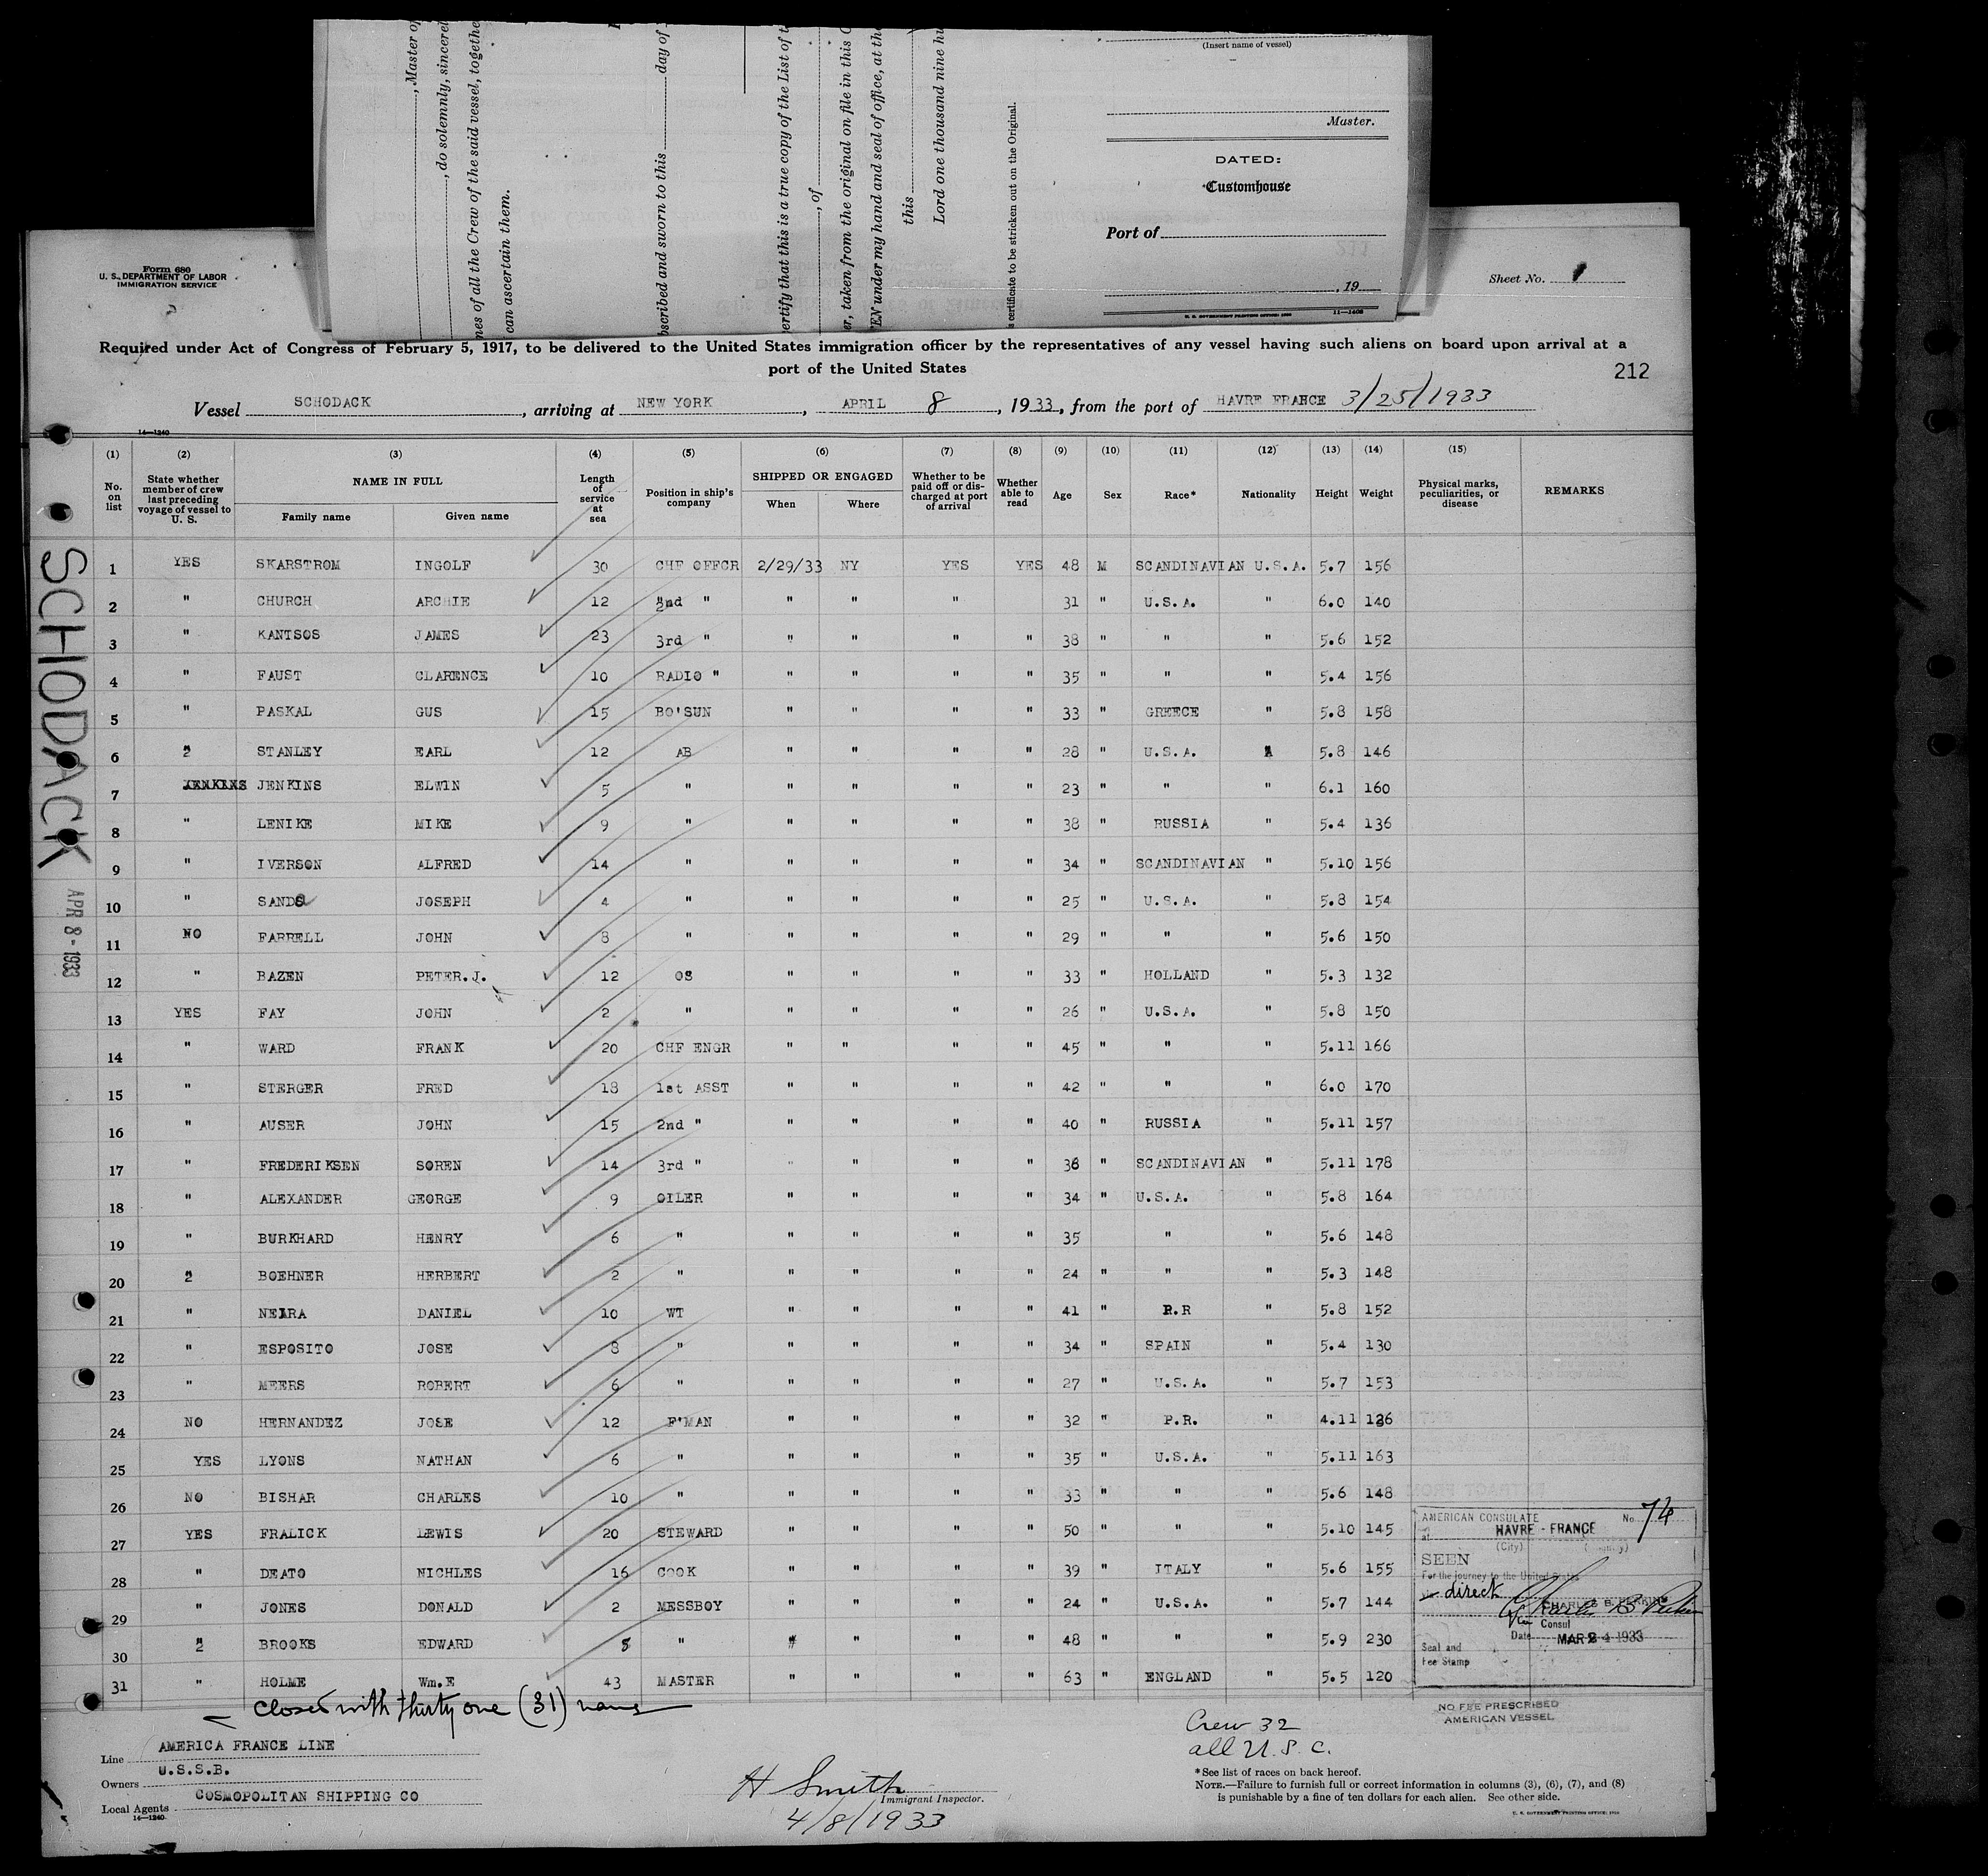 , Master of
, do solemnly, sincerel
nes of all the Crew of the said vessel, togethe
can ascertain them.
bscribed and sworn to this day of
ertify that this is a true copy of the List of t
, of
er, taken from the original on file in this C
EN under my hand and seal of office, at the
this
Lord one thousand nine hu
s certificate to be stricken out on the Original.
(Insert name of vessel)
Master.
DATED:
Customhouse
Port of
, 19
U. S. GOVERNMENT PRINTING OFFICE: 11—1408
Form 680
U. S. DEPARTMENT OF LABOR
IMMIGRATION SERVICE
Sheet No. 1
Required under Act of Congress of February 5, 1917, to be delivered to the United States immigration officer by the representatives of any vessel having such aliens on board upon arrival at a
port of the United States
212
Vessel SCHODACK, arriving at NEW YORK, APRIL 8, 1933, from the port of HAVRE FRANCE 3/25/1933
14—1240
(1) (2) (3) (4) (5) (6) (7) (8) (9) (10) (11) (12) (13) (14) (15)
No. on list
State whether member of crew last preceding voyage of vessel to U. S.
NAME IN FULL
Family name Given name
Length of service at sea
Position in ship's company
SHIPPED OR ENGAGED
When Where
Whether to be paid off or discharged at port of arrival
Whether able to read
Age Sex Race* Nationality Height Weight
Physical marks, peculiarities, or disease
REMARKS
SCHODACK
APR 8 - 1933
1 YES SKARSTROM INGOLF 30 CHF OFFCR 2/29/33 NY YES YES 48 M SCANDINAVIAN U.S.A. 5.7 156
2 " CHURCH ARCHIE 12 2nd " " " " 31 " U.S.A. " 6.0 140
3 " KANTSOS JAMES 23 3rd " " " " " 38 " " " 5.6 152
4 " FAUST CLARENCE 10 RADIO " " " " " 35 " " " 5.4 156
5 " PASKAL GUS 15 BO'SUN " " " " 33 " GREECE " 5.8 158
6 2 STANLEY EARL 12 AB " " " " 28 " U.S.A. 5.8 146
7 JENKINS JENKINS ELWIN 5 " " " " " 23 " " " 6.1 160
8 " LENIKE MIKE 9 " " " " " 38 " RUSSIA " 5.4 136
9 " IVERSON ALFRED 14 " " " " " 34 " SCANDINAVIAN " 5.10 156
10 " SANDS JOSEPH 4 " " " " " 25 " U.S.A. " 5.8 154
11 NO FARRELL JOHN 8 " " " " " 29 " " " 5.6 150
12 " BAZEN PETER.J. 12 OS " " " " 33 " HOLLAND " 5.3 132
13 YES FAY JOHN 2 " " " " " 26 " U.S.A. " 5.8 150
14 " WARD FRANK 20 CHF ENGR " " " " 45 " " " 5.11 166
15 " STERGER FRED 18 1st ASST " " " " 42 " " " 6.0 170
16 " AUSER JOHN 15 2nd " " " " " 40 " RUSSIA " 5.11 157
17 " FREDERIKSEN SOREN 14 3rd " " " " " 36 " SCANDINAVIAN " 5.11 178
18 " ALEXANDER GEORGE 9 OILER " " " " 34 " U.S.A. " 5.8 164
19 " BURKHARD HENRY 6 " " " " " 35 " " 5.6 148
20 2 BOEHNER HERBERT 2 " " " " " 24 " " " 5.3 148
21 " DANIEL 10 WT " " " " 41 " P.R " 5.8 152
22 " ESPOSITO JOSE 8 " " " " " 34 " SPAIN " 5.4 130
23 " MEERS ROBERT 6 " " " " " 27 " U.S.A. " 5.7 153
24 NO HERNANDEZ JOSE 12 F'MAN " " " " 32 " P.R. " 4.11 126
25 YES LYONS NATHAN 6 " " " " " 35 " U.S.A. " 5.11 163
26 NO BISHAR CHARLES 10 " " " " " 33 " " " 5.6 148
27 YES FRALICK LEWIS 20 STEWARD " " " " 50 " " " 5.10 145
28 " DEATO NICHLES 16 COOK " " " " 39 " ITALY " 5.6 155
29 " JONES DONALD 2 MESSBOY " " " " 24 " U.S.A. " 5.7 144
30 2 BROOKS EDWARD 5 " " " " " 48 " " " 5.9 230
31 " HOLME Wm.E 43 MASTER " " " " 63 " ENGLAND " 5.5 120
AMERICAN CONSULATE No. 74
at HAVRE - FRANCE
(City) (Country)
SEEN
For the journey to the United States
via direct
CHARLES B. PERKINS
Consul
Date MAR 24 1933
Seal and
Fee Stamp
NO FEE PRESCRIBED
AMERICAN VESSEL
Closed with thirty one (31) names
Crew 32
all U.S.C.
Line AMERICA FRANCE LINE
Owners U.S.S.B.
Local Agents COSMOPOLITAN SHIPPING CO
14—1240
H Smith
Immigrant Inspector.
4/8/1933
*See list of races on back hereof.
NOTE.—Failure to furnish full or correct information in columns (3), (6), (7), and (8)
is punishable by a fine of ten dollars for each alien. See other side.
U. S. GOVERNMENT PRINTING OFFICE: